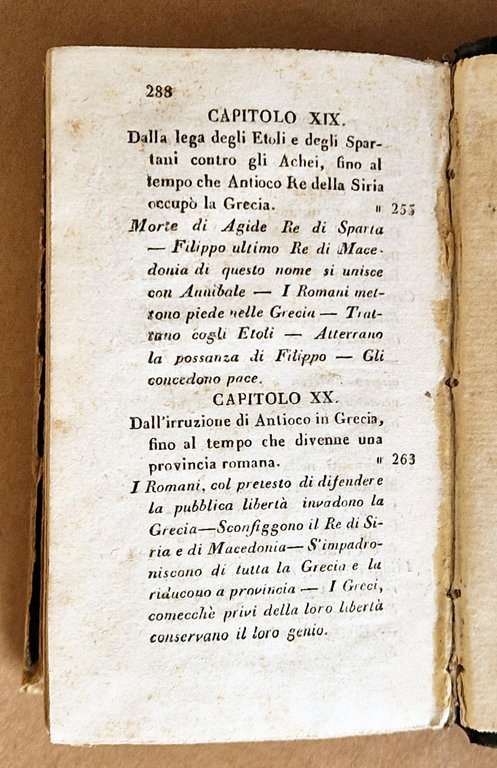 288
CAPITOLO XIX.
Dalla lega degli Etoli e degli Spar-
tani contro gli Achei, fino al
tempo che Antioco Re della Siria
occupò la Grecia. " 255
Morte di Agide Re di Sparta
— Filippo ultimo Re di Mace-
donia di questo nome si unisce
con Annibale — I Romani met-
tono piede nelle Grecia — Trat-
tano cogli Etoli — Atterrano
la possanza di Filippo — Gli
concedono pace.
CAPITOLO XX.
Dall'irruzione di Antioco in Grecia,
fino al tempo che divenne una
provincia romana. " 263
I Romani, col pretesto di difendere
la pubblica libertà invadono la
Grecia—Sconfiggono il Re di Si-
ria e di Macedonia—S'impadro-
niscono di tutta la Grecia e la
riducono a provincia — I Greci,
comecchè privi della loro libertà
conservano il loro genio.